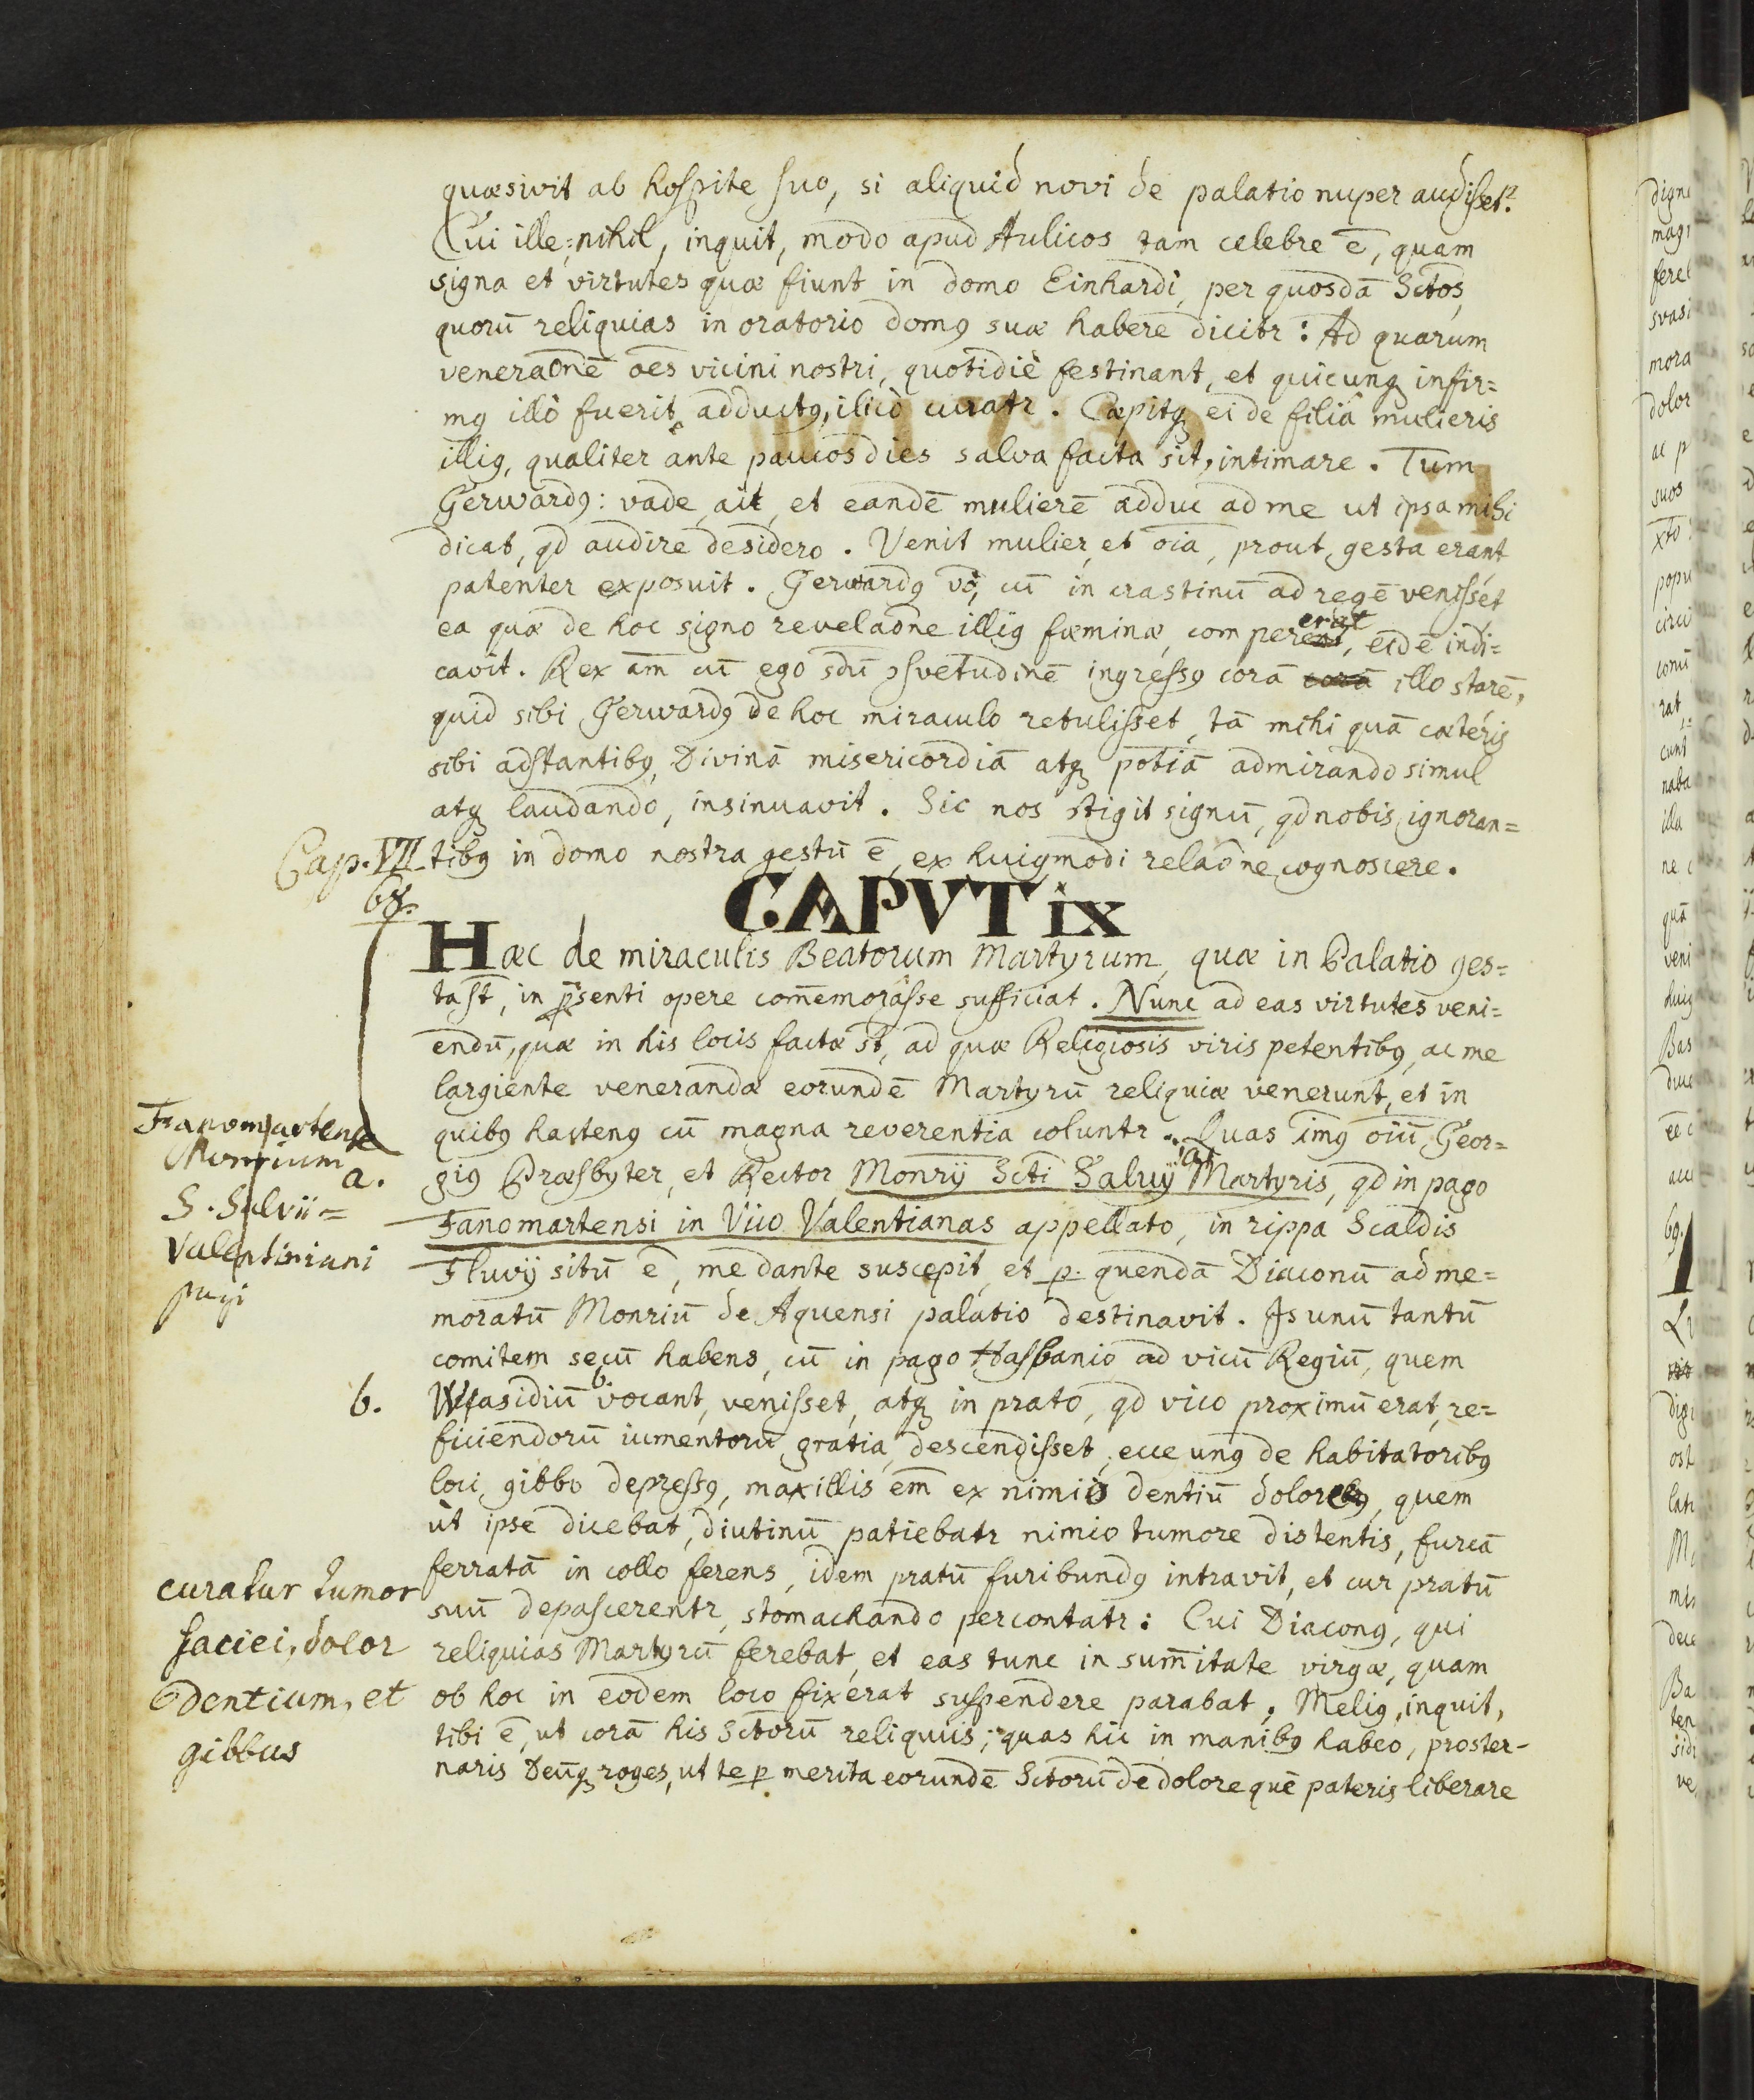 quæsivit ab hospite suo, si aliquid novi de palatio nuper audisset?
Cui ille: nihil, inquit, modo apud Aulicos tam celebre ē, quam
signa et virtutes quæ fiunt in domo Einhardi, per quosdā Sctos,
quorū reliquias in oratorio domꝰ suæ habere dicitr: Ad quarum
veneraōnē oēs vicini nostri, quotidiè festinant, et quicunqꝫ infir=
mꝰ illò fuerit adductꝰ, ilicò curatr. Cæpitqꝫ ei de filiâ mulieris
illiꝰ, qualiter ante paucos dies salva facta sit, intimare. Tum
Gerwardꝰ: vade, ait, et eandē mulierē adduc ad me ut ipsa mihi
dicat, qd audire desidero. Venit mulier, et oīa, prout, gesta erant
patenter exposuit. Gerwardꝰ vō, cū in crastinū ad regē venisset
ea quæ de hoc signo revelaōne illiꝰ fœminæ, compererat, eidē indi=
cavit. Rex am̄ cū ego sdū ↄsvetudinē ingressꝰ corā corā illo starē,
quid sibi Gerwardꝰ de hoc miraculo retulisset, tā mihi quā cæteris
sibi adstantibꝰ, Divinā misericordiā atqꝫ potīa admirando simul
atqꝫ laudando, insinuavit. Sic nos ↄtigit signū, qd nobis ignoran=
Cap. VII
tibꝰ in domo nostra gestū ē, ex huiꝰmodi relaōne cognoscere.
68.
CAPVT ix
Hæc de miraculis Beatorum Martyrum, quæ in Palatio ges=
ta st̄, in p̄senti opere com̄emorâsse sufficiat. Nunc ad eas virtutes veni=
endū, quæ in his locis factæ st̄, ad quæ Religiosis viris petentibꝰ, ac me
largiente venerandæ eorundē Martyrū reliquiæ venerunt, et in
quibꝰ hactenꝰ cū magna reverentia coluntr. Quas īmꝰ oiū, Geor=
giꝰ Præsbyter, et Rector Monrij Scti Salvij a. Martyris, qd in pago
Fanomartensi in Vico Valentianas appellato, in rippa Scaldis
Fluvij sitū ē, me dante suscepit, et p. quendā Diaconū ad me=
moratū Monriū de Aquensi palatio destinavit. Is unū tantū
comitem secū habens, cū in pago Hasbanio ad vicū Regiū, quem
Wasidiū b. vocant, venisset, atqꝫ in prato, qd vico proximū erat, re=
ficiendorū iumentorū gratia, descendisset, ecce unꝰ de habitatoribꝰ
loci, gibbo depressꝰ, maxillis em̄ ex nimio dentiū dolore, quem
ùt ipse dicebat, diutinū patiebatr nimio tumore distentis, furcā
ferratā in collo ferens, idem pratū furibundꝰ intravit, et cur pratū
suū depascerentr, stomachando percontatr: Cui Diaconꝰ, qui
reliquias Martyrū ferebat, et eas tunc in sum̄itate virgæ, quam
ob hoc in eodem loco fixerat suspendere parabat, Meliꝰ, inquit,
tibi ē, ut corā his Sctorū reliquiis, quas hic in manibꝰ habeo, proster-
naris Deūqꝫ roges, ut te p merita eorundē Sctorū de dolore quē pateris liberare
Fanomartense
a.
S. Salvii =
Valentiniani
pagi
b.
curatur tumor
faciei, dolor
dentium, et
gibbus